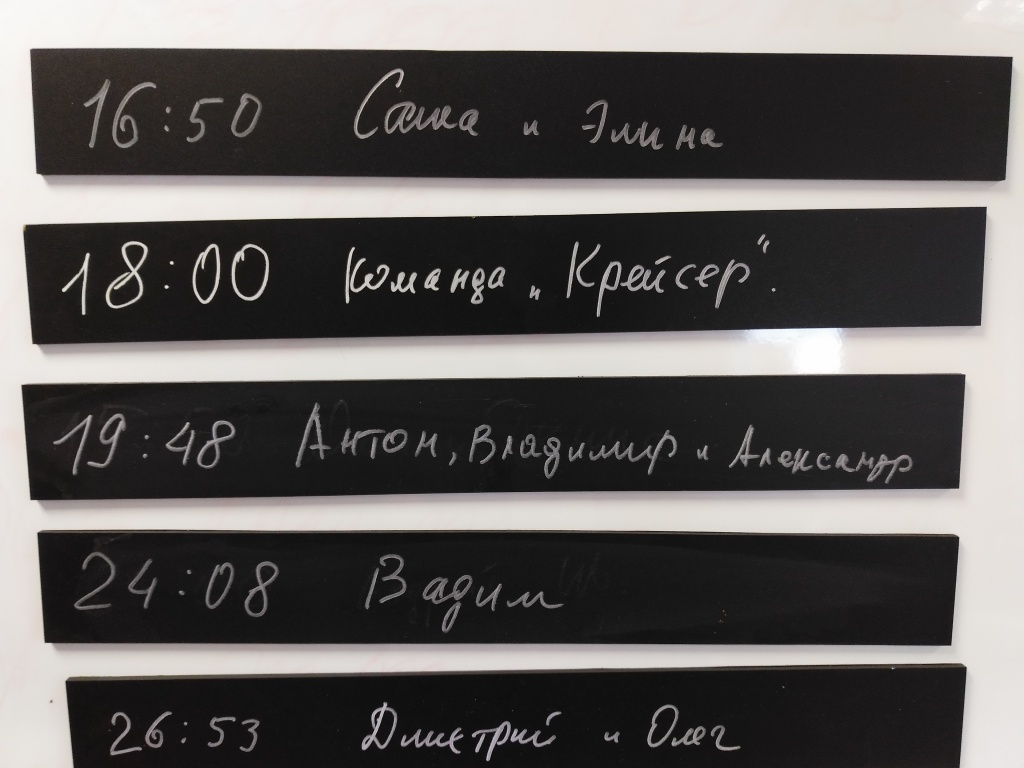 16:50 Саша и Элина
18:00 команда „Крейсер".
19:48 Антон, Владимир и Александр
24:08 Вадим
26:53 Дмитрий и Олег